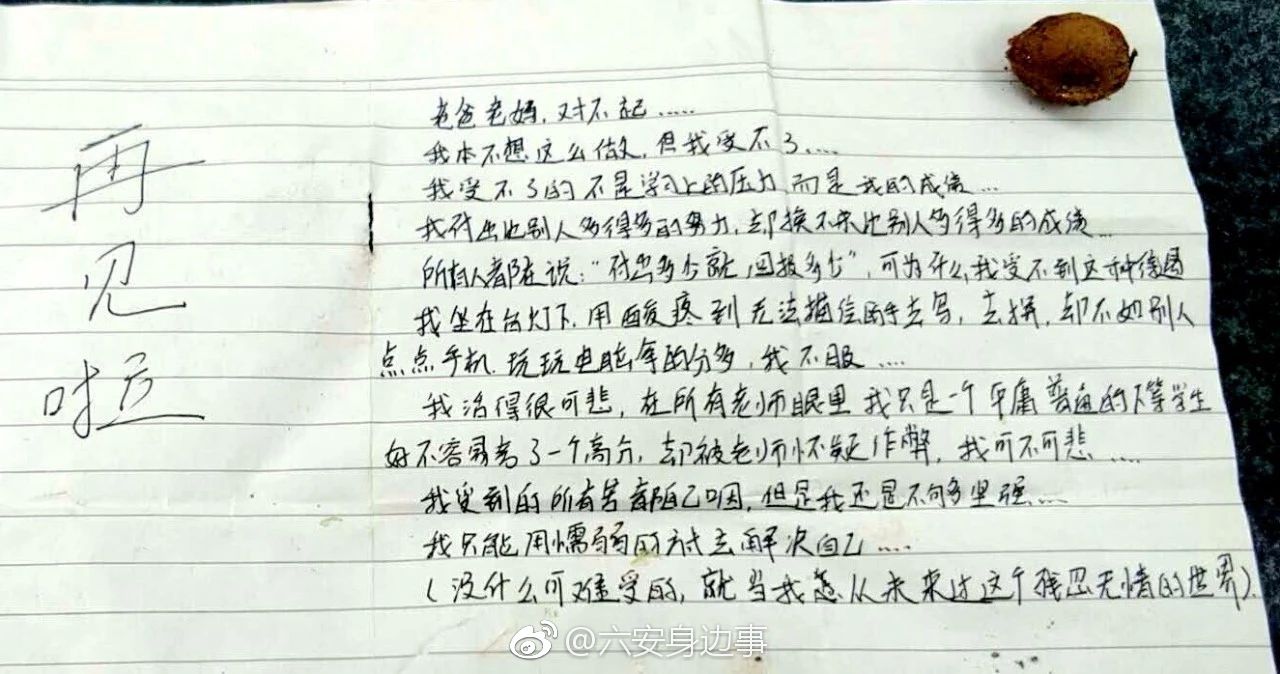 再
见
啦
老爸老妈，对不起.....
我本不想这么做，但我受不了....
我受不了的不是学习上的压力，而是我的成绩...
我付出比别人多得多的努力，却换不来比别人多得多的成绩...
所有人都在说：“付出多少就回报多少”，可为什么我受不到这种待遇
我坐在台灯下，用酸疼到无法描绘的手去写，去拼，却不如别人
点点手机，玩玩电脑拿的分多，我不服....
我活得很可悲，在所有老师眼里我只是一个平庸普通的下等学生
好不容易考了一个高分，却被老师怀疑作弊，我可不可悲....
我受到的所有苦都自己咽，但是我还是不够坚强...
我只能用懦弱的方式去解决自己....
（没什么可难受的，就当我从未来过这个残忍无情的世界）.
@六安身边事